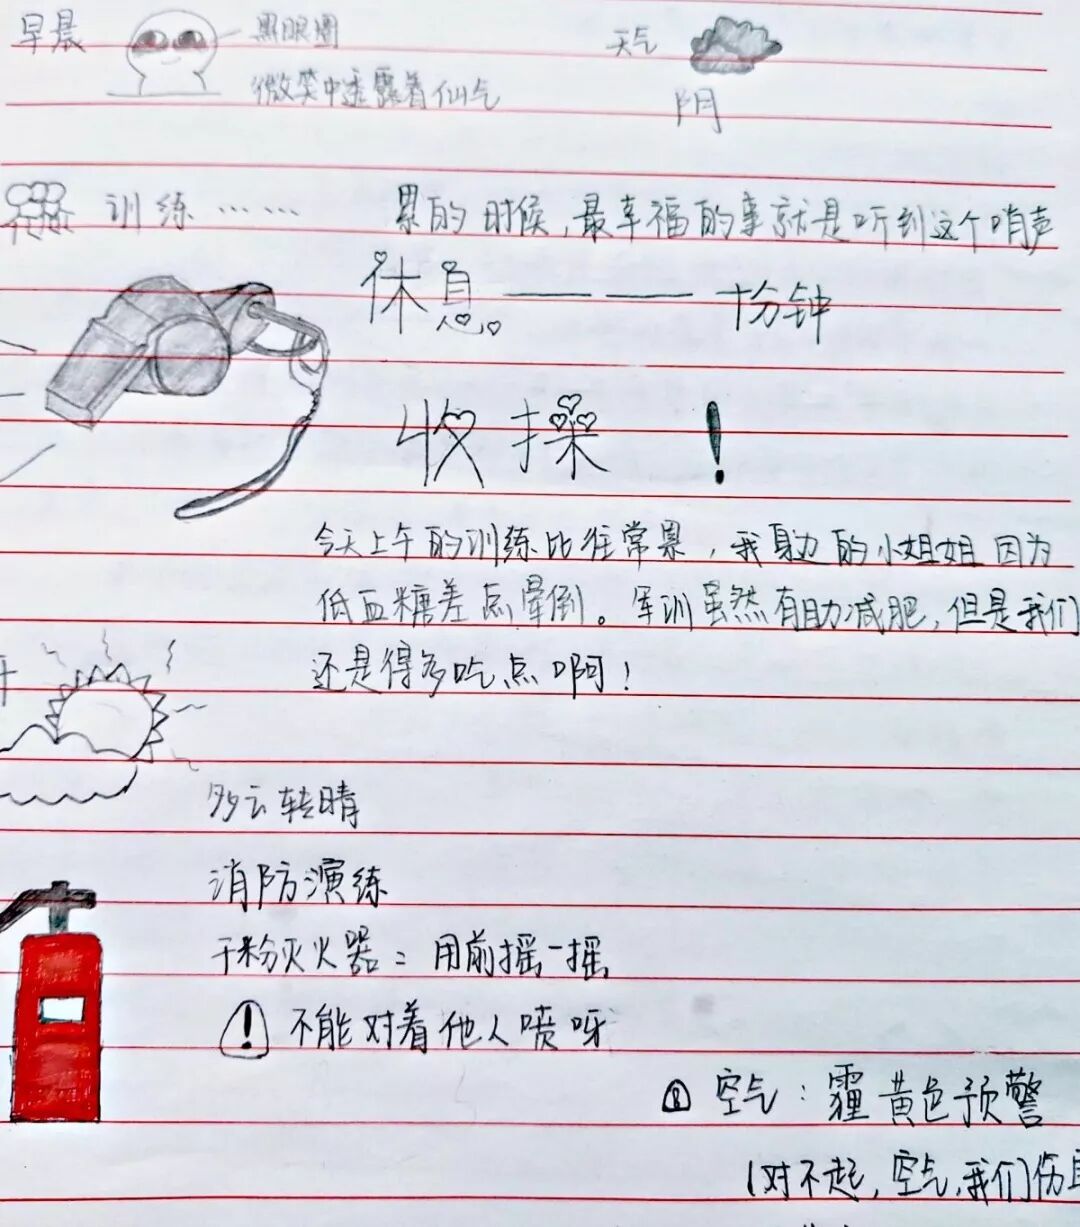 早晨 黑眼圈 天气
微笑中透露着仙气 阴
训练…… 累的时候,最幸福的事就是听到这个哨声
休息——十分钟
收操!
今天上午的训练比往常累,我身边的小姐姐因为
低血糖差点晕倒。军训虽然有助减肥,但是我们
还是得多吃点啊!
多云转晴
消防演练
干粉灭火器:用前摇一摇
! 不能对着他人喷呀
空气:霾黄色预警
(对不起,空气,我们伤